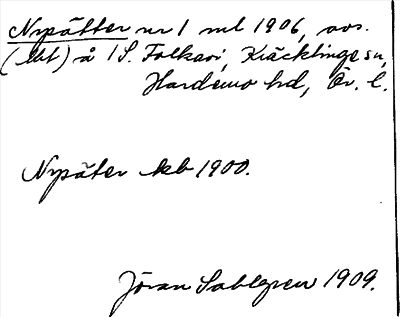 Nysätter nr 1 ml 1906, avs.
(lht) å 1 S. Folkavi, Kräcklinge sn,
Hardemo hd, Ör. l.
Nysäter kb 1900.
Jöran Sahlgren 1909.